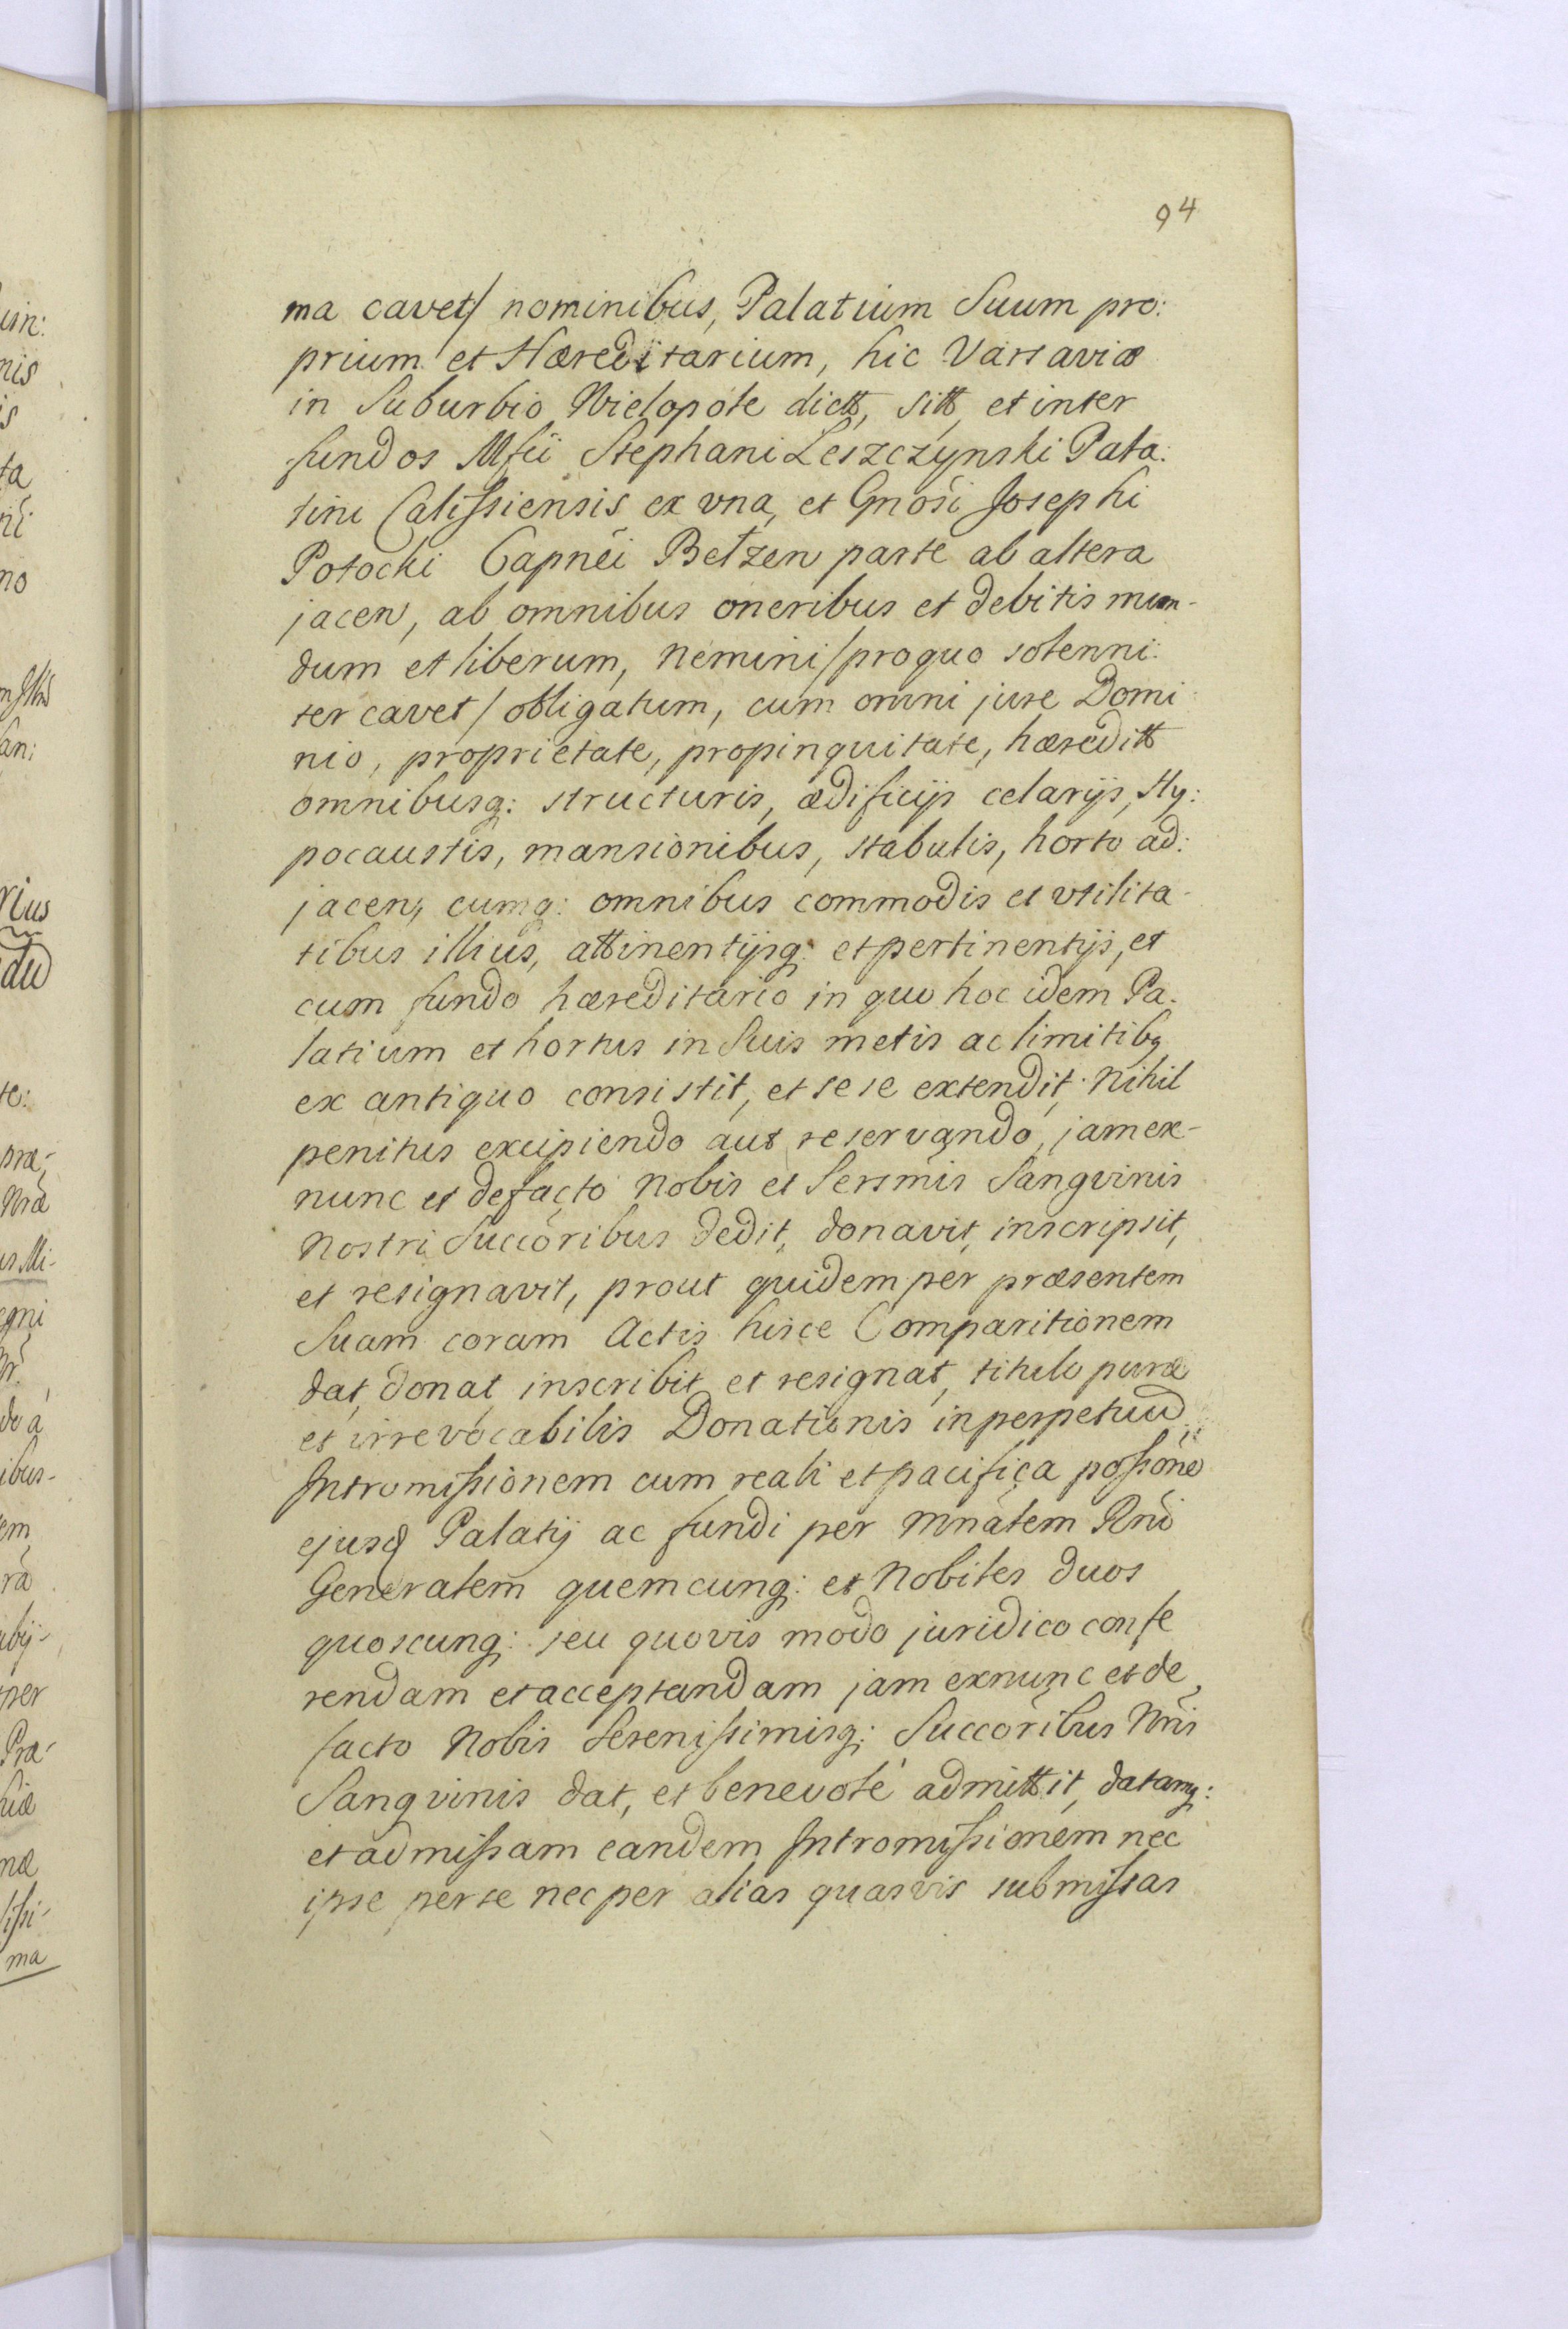 94
ma cavet/ nominibus, Palatium Suum pro:
prium et Hæreditarium, hic Varsaviæ
in Suburbio Wielopole dictt, sitt, et inter
fundos Mfci Stephani Leszczynski Pala:
tini Calissiensis ex vna, et Gnosi Josephi
Potocki Capnei Belzen parte ab altera
jacen, ab omnibus oneribus et debitis mun-
dum et liberum, nemini /pro quo solenni:
ter cavet/ obligatum, cum omni jure Domi
nio, proprietate, propinquitate, hæreditt
omnibusq: structuris, ædificijs celarijs, Hy:
pocaustis, mansionibus, stabulis, horto ad:
jacen, cumq: omnibus commodis et vtilita-
tibus illius, attinentijsq: et pertinentijs, et
cum fundo hæreditario in quo hoc idem Pa-
latium et hortus in Suis metis ac limitibq
ex antiquo consistit, et sese extendit, nihil
penitus excipiendo aut reservando, jam ex-
nunc et defacto Nobis et Sersmis Sangvinis
Nostri Succoribus dedit, donavit, inscripsit,
et resignavit, prout quidem per præsentem
Suam coram Actis hisce Comparitionem
dat, donat, inscribit et resignat, titulo puræ
et irrevocabilis Donationis in perpetuū
Intromissionem cum reali et pacifica possone
ejusd Palatij ac fundi per Mnatem Rni
Generalem quemcunq: et Nobiles duos
quoscunq: seu quovis modo juridico confe
rendam et acceptandam jam exnunc et de
facto Nobis Serenissimisq: Succoribus Nris
Sangvinis dat, et benevolé admittit, datamq:
et admissam eandem Intromissionem nec
ipse per se nec per alias quasvis submissas